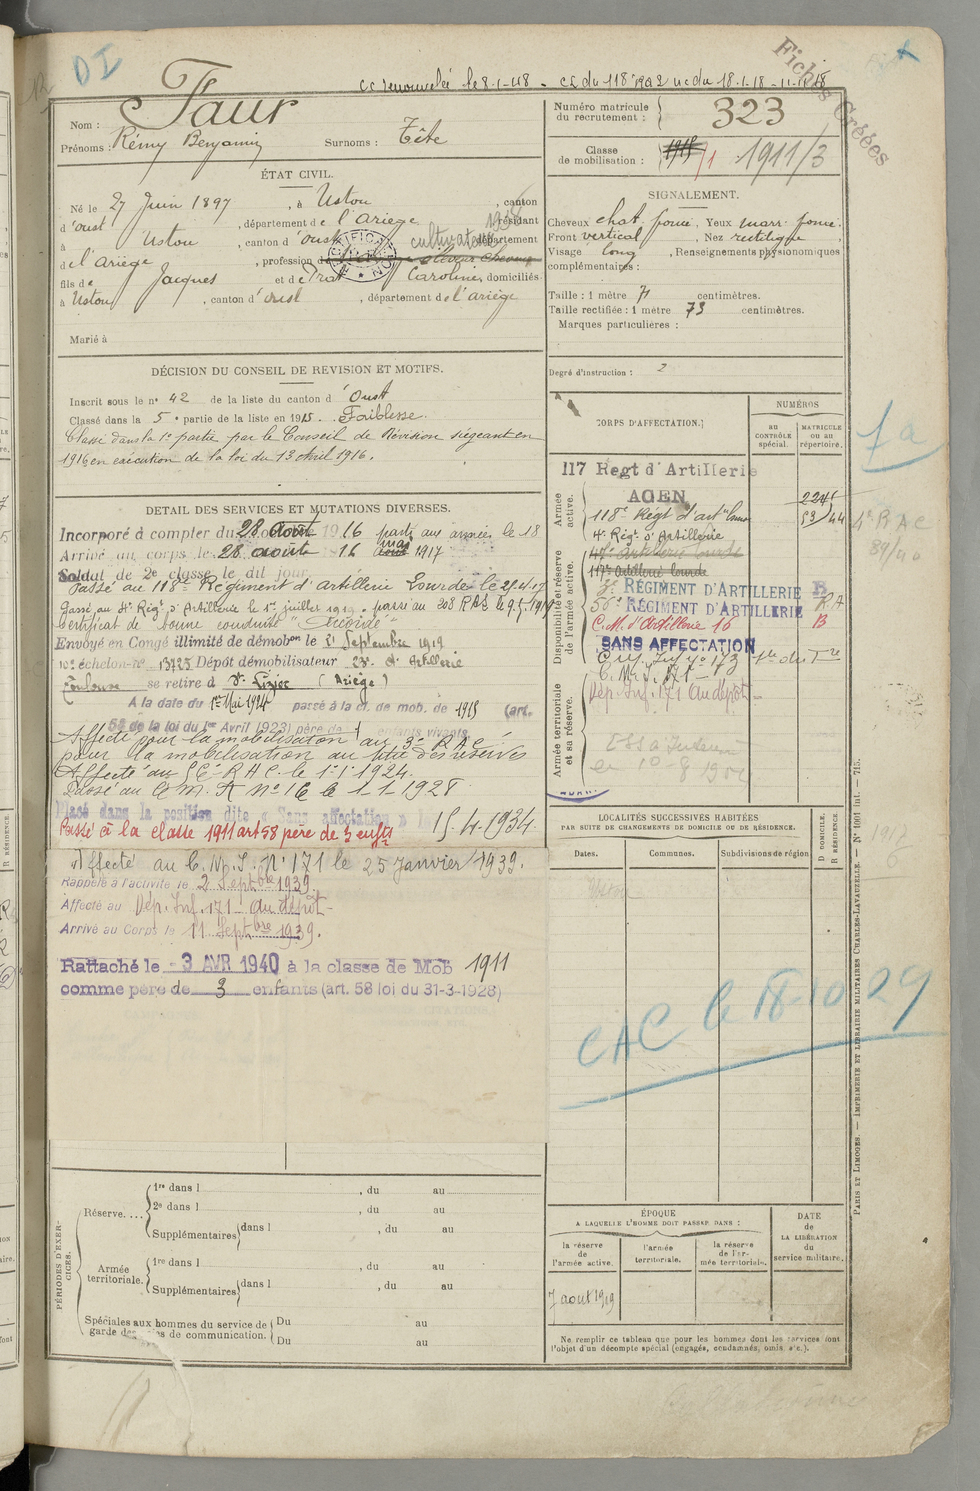 DI
cc renouvelé le 8-1-48 - cc du 118 RA2 uc du 18-1-18 - 11-11-18
Fiches Créées
Nom : Faur
Prénoms : Rémy Benjamin Surnoms : Tête
Numéro matricule du recrutement : 323
Classe de mobilisation : 1915 1911/3
ÉTAT CIVIL.
Né le 27 Juin 1897, à Ustou, canton
d'Oust, département de l'Ariège, résidant
à Ustou, canton d'Oust, département
cultivateur
de l'Ariège, profession d
fils de Jacques et de Caroline domiciliés
à Ustou, canton d'Oust, département de l'Ariège
Marié à
SIGNALEMENT.
Cheveux chat. foncé, Yeux marr. foncé.
Front vertical, Nez rectiligne
Visage long, Renseignements physionomiques
complémentaires :
Taille : 1 mètre 71 centimètres.
Taille rectifiée : 1 mètre 73 centimètres.
Marques particulières :
Degré d'instruction : 2
DÉCISION DU CONSEIL DE REVISION ET MOTIFS.
Inscrit sous le n° 42 de la liste du canton d'Oust
Classé dans la 5e partie de la liste en 1915. Faiblesse.
Classé dans la 1e partie par le Conseil de Révision siégeant en
1916 en exécution de la loi du 13 Avril 1916.
DÉTAIL DES SERVICES ET MUTATIONS DIVERSES.
Incorporé à compter du 28 août 1916 parti aux armées le 18
Arrivé au corps le 28 août 1916 mai 1917
Soldat de 2e classe le dit jour
Passé au 118e Régiment d'artillerie Lourde le
Passé au 4e Régt d'Artillerie le 1er juillet 1919. passé au 208 RAC le
Certificat de bonne conduite "Accordé"
Envoyé en Congé illimité de démobon le Septembre 1919
10e échelon-no 13725 Dépôt démobilisateur 23e d'Artillerie
Toulouse se retire à St Lizier (Ariège)
A la date du 1er Mai 1924 passé à la cl. de mob. de 1915 (art.
58 de la loi du 1er Avril 1923) père de 1 enfants vivants
Affecté pour la mobilisation au
pour la mobilisation au titre des réserves
Affecté au RAC. le 1-1-1924.
Passé au C.M. A No 16 le 1-1-1928
Placé dans la position dite « Sans affectation » le 15-4-1934.
Passé à la classe 1911 art 58 père de 3 enfts
Affecté au C.M.I. No 171 le 25 Janvier 1939.
Rappelé à l'activité le 2 Septbre 1939.
Affecté au Dép. Inf. 171 au dépôt -
Arrivé au Corps le 11 Septbre 1939.
Rattaché le 3 AVR 1940 à la classe de Mob 1911
comme père de 3 enfants (art. 58 loi du 31-3-1928)
CORPS D'AFFECTATION.
NUMÉROS
au contrôle spécial.
matricule ou au répertoire.
Armée active.
117 Regt d'Artillerie
AGEN
118e Régt d'artie lourde
4e Régt d'Artillerie
Disponibilité et réserve de l'armée active.
117e Artillerie lourde
RÉGIMENT D'ARTILLERIE
56e RÉGIMENT D'ARTILLERIE
C.M. d'Artillerie 16 B
SANS AFFECTATION
Armée territoriale et sa réserve.
C.M.I. 171 -
Dép. Inf. 171 au dépôt -
1a
LOCALITÉS SUCCESSIVES HABITÉES
PAR SUITE DE CHANGEMENTS DE DOMICILE OU DE RÉSIDENCE.
Dates. Communes. Subdivisions de région
D DOMICILE.
R RÉSIDENCE.
CAC le 18-10-29
PÉRIODES D'EXERCICES.
Réserve....
1re dans l , du au
2e dans l , du au
Supplémentaires dans l , du au
Armée territoriale.
1re dans l , du au
Supplémentaires dans l , du au
Spéciales aux hommes du service de garde des voies de communication.
Du au
Du au
ÉPOQUE
A LAQUELLE L'HOMME DOIT PASSER DANS :
la réserve de l'armée active.
l'armée territoriale.
la réserve de l'armée territoriale.
DATE DE LA LIBÉRATION du service militaire.
7 août 1919
Ne remplir ce tableau que pour les hommes dont les services font
l'objet d'un décompte spécial (engagés, condamnés, omis, etc.).
PARIS ET LIMOGES. — IMPRIMERIE ET LIBRAIRIE MILITAIRES CHARLES-LAVAUZELLE. — N° 1001 Int. — 715.